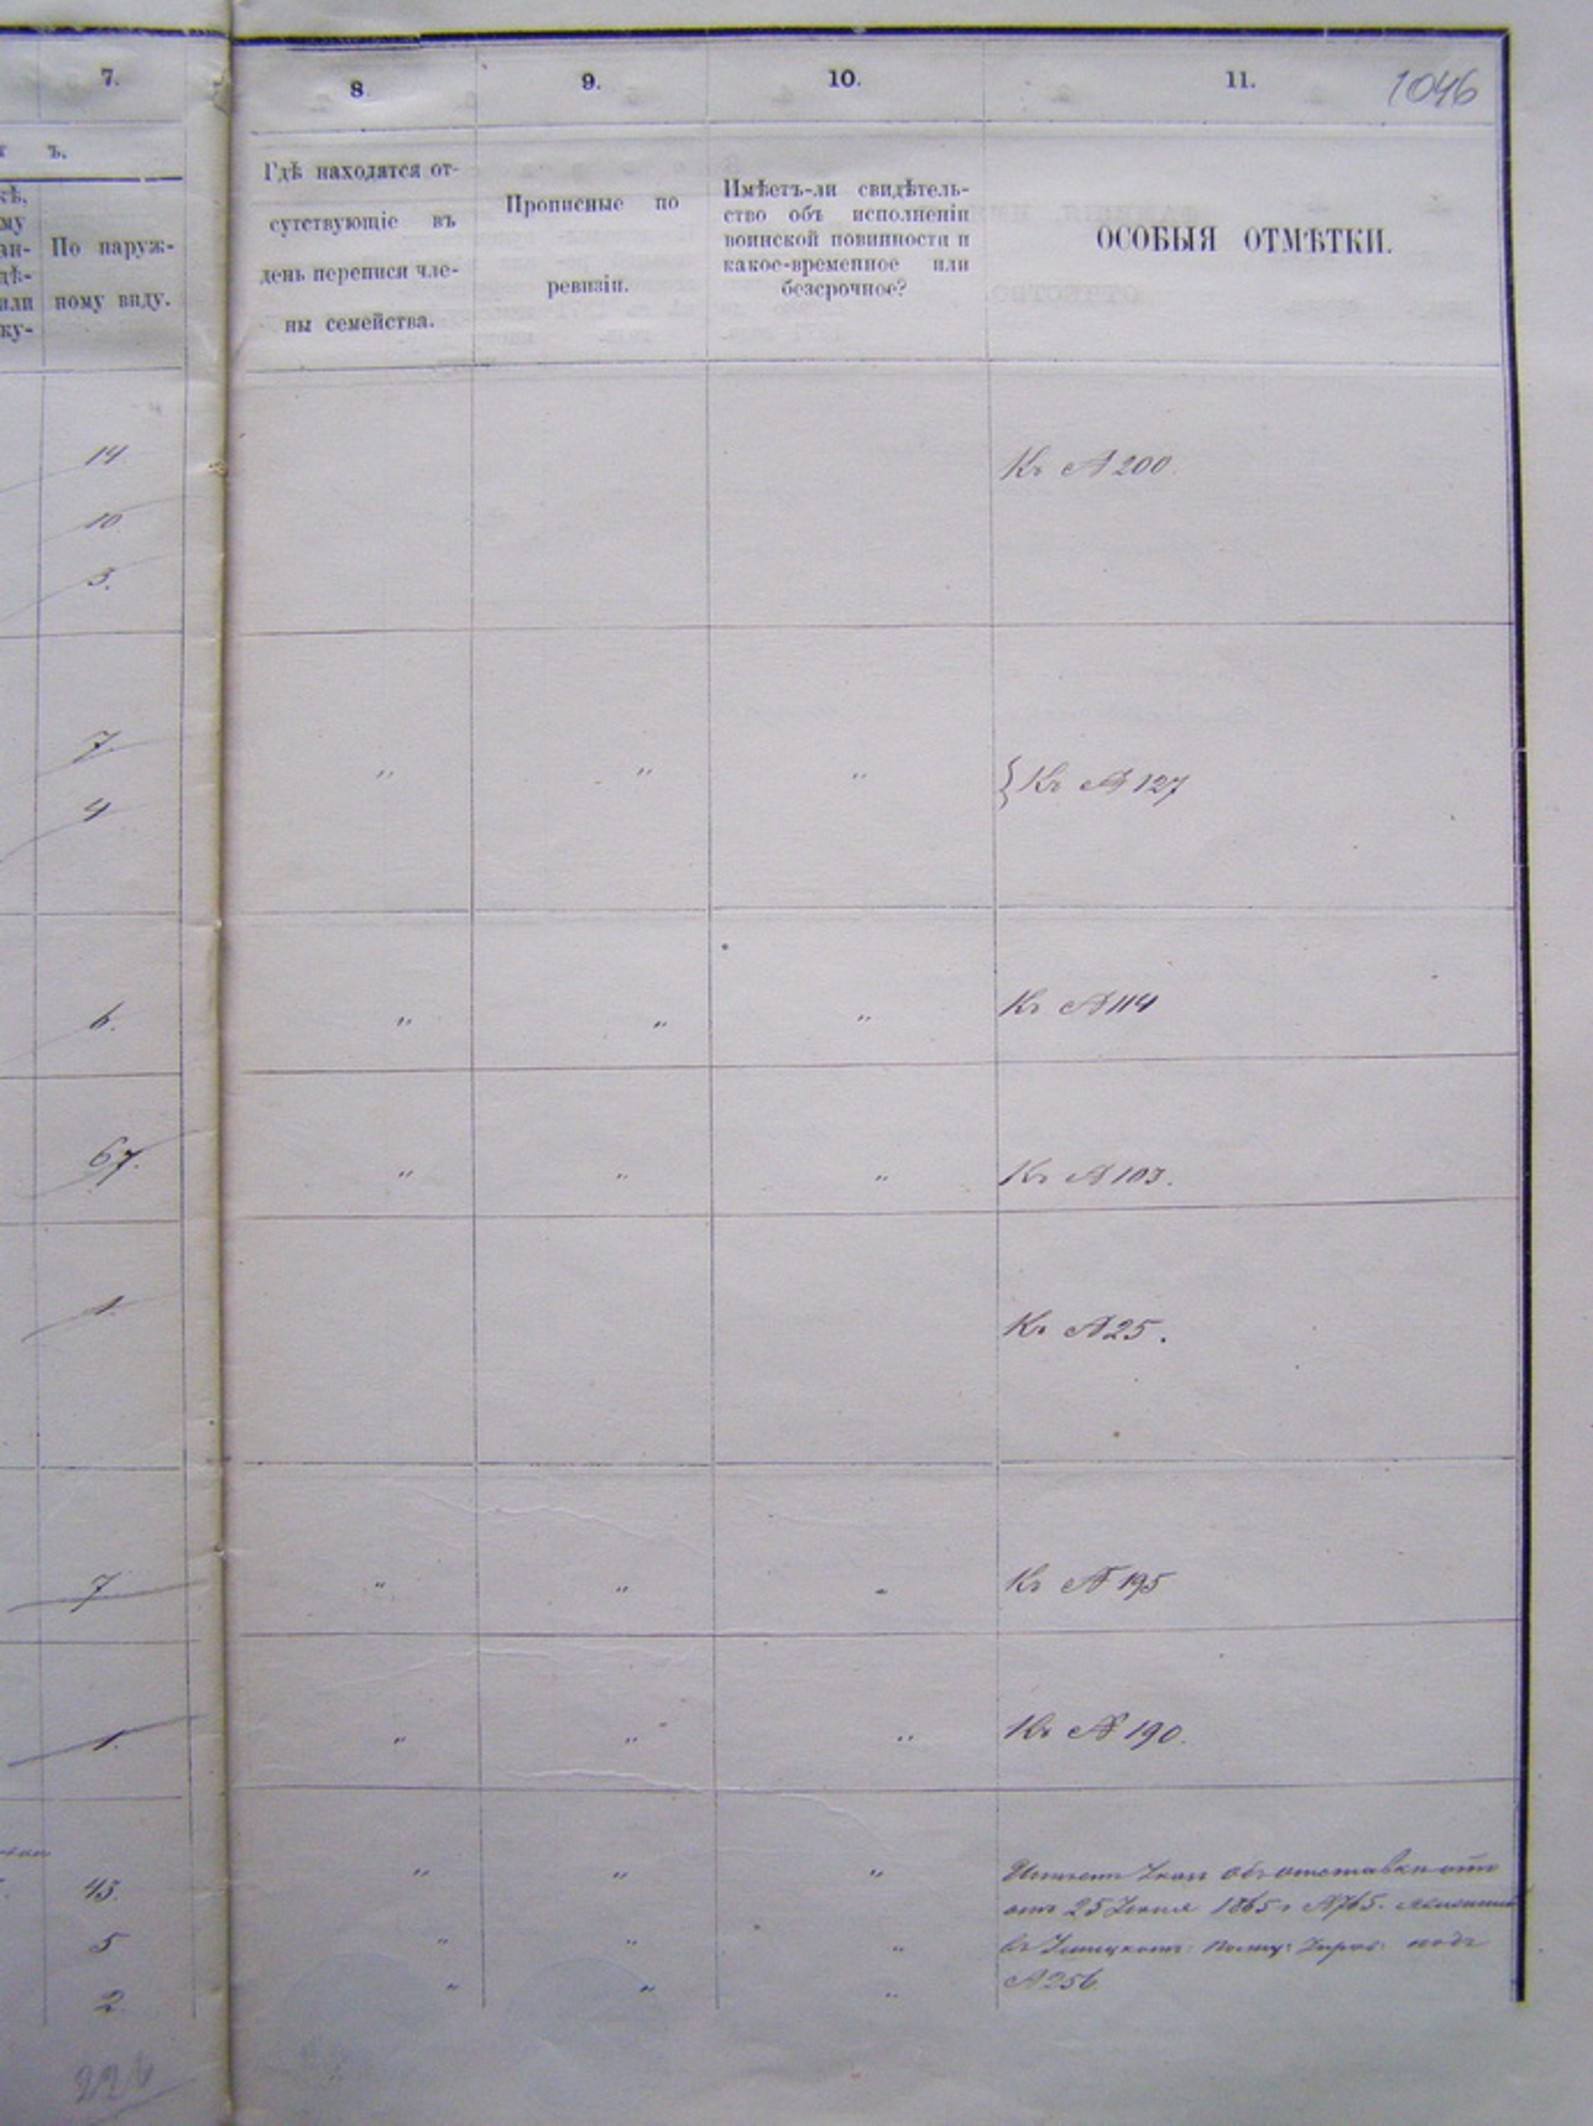 7.
8
9.
10.
11.
1046
ъ.
По наруж-
ному виду.
Гдѣ находятся от-
сутствующіе въ
день переписи чле-
ны семейства.
Прописные по
ревизіи.
Имѣетъ-ли свидѣтель-
ство объ исполненіи
воинской повинности и
какое-временное или
безсрочное?
ОСОБЫЯ ОТМѢТКИ.
14
Къ № 200.
10
3.
7.
" " " Къ № 127
4
6. " " " Къ № 114
67. " " " Къ № 103.
1. Къ № 25.
7 " " " Къ № 195
1. " " " Къ № 190.
45. " " " Указъ объ отставки
отъ 25 1865 г № 765.
5 " " " въ подъ
2. " " " № 256.
224